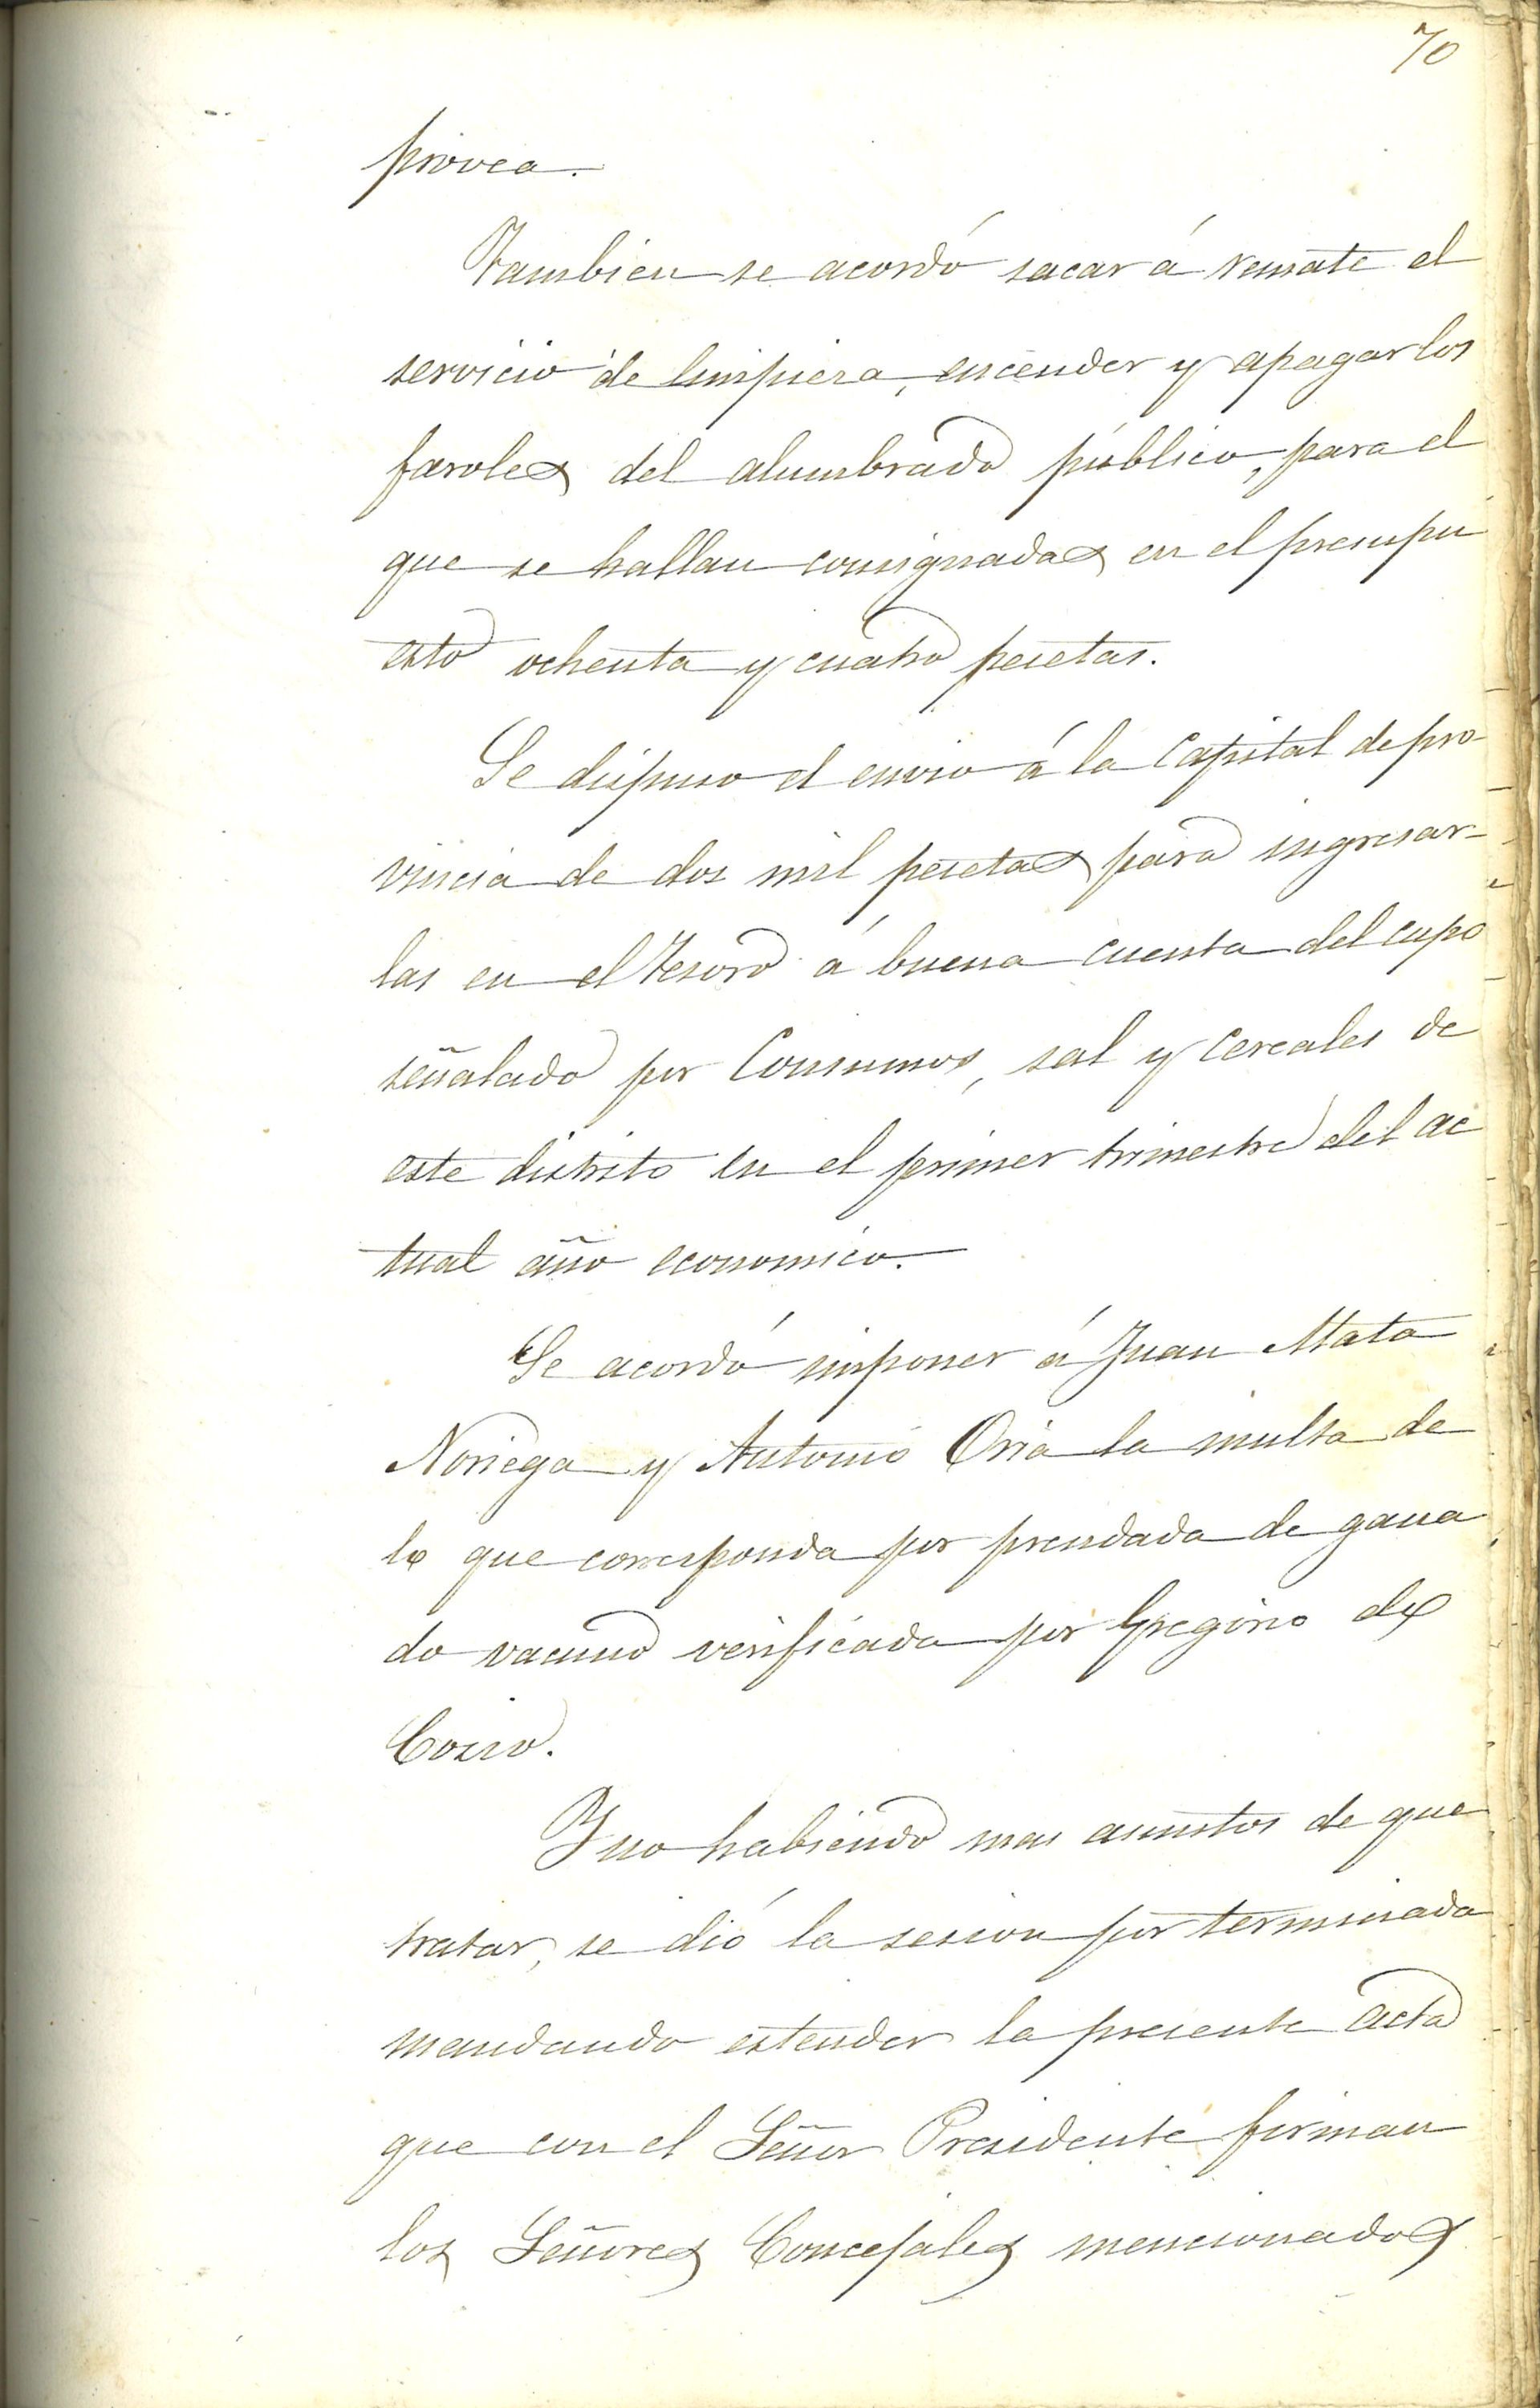 70
provea.
Tambien se acordó sacar á remate el
servicio de limpieza, encender y apagar los
faroles del alumbrado público, para el
que se hallan consignadas en el presupu
esto ochenta y cuatro pesetas.
Se dispuso el envio á la Capital de pro-
vincia de dos mil pesetas para ingresar-
las en el Tesoro á buena cuenta del cupo
señalado por Consumos, sal y cereales de
este distrito en el primer trimestre del ac
tual año economico.
Se acordó imponer á Juan Mata
Noriega y Antonio Oria la multa de
lo que corresponda por prendada de gana
do vacuno verificada por Gregorio de
Cozio.
Y no habiendo mas asuntos de que
tratar, se dió la sesion por terminada
mandando estender la presente acta
que con el Señor Presidente firman
los Señores Concejales mencionados